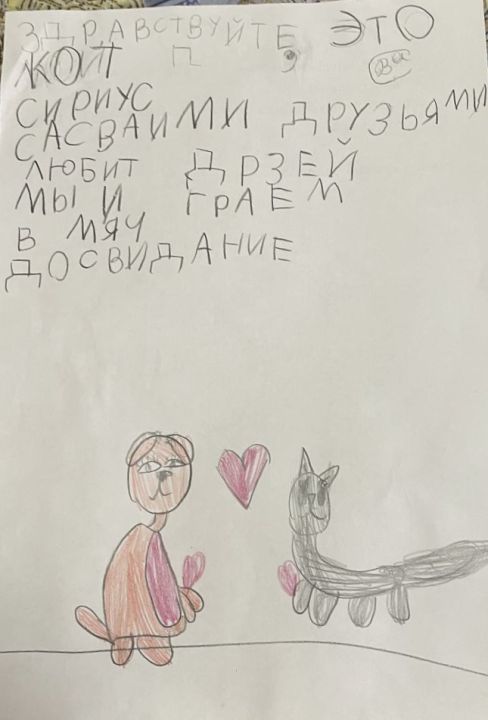 ЗДРАВСТВУЙТЕ, ЭТО
КОТ П
СИРИУС
САСВАИМИ ДРУЗЬЯМИ
ЛЮБИТ ДРЗЕЙ
МЫ И ГРАЕМ
В МЯЧ
ДОСВИДАНИЕ